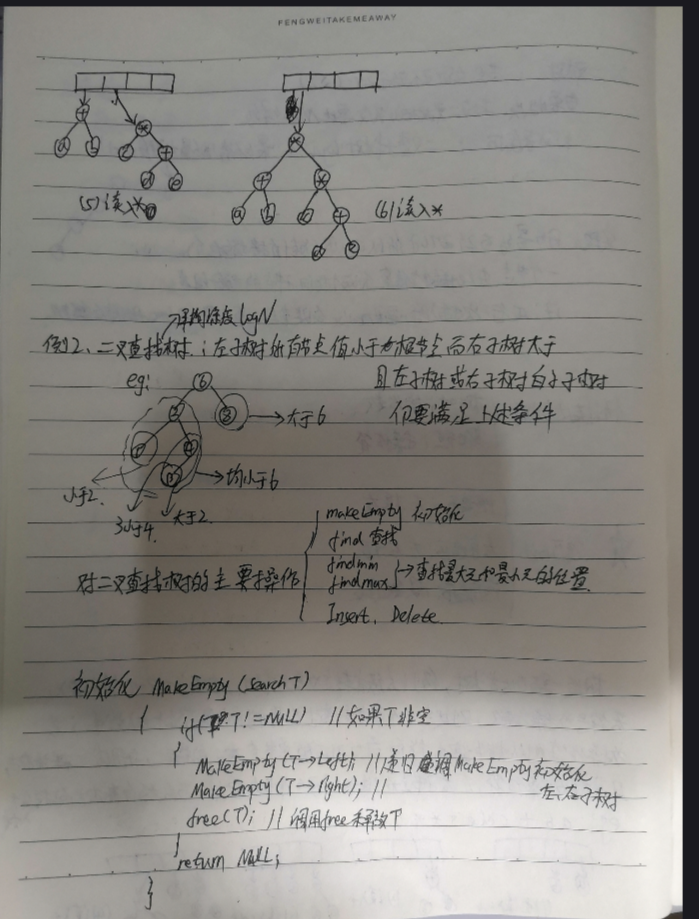 FENGWEITAKEMEAWAY
+ *
a b c +
d e
(5) 读入*
*
+ *
a b c +
d e
(6) 读入*
平均深度 logN
例2、二叉查找树：左子树所有节点值小于根节点而右子树大于
且左子树或右子树的子树
仍要满足上述条件
eg:
6
2 8 → 大于6
1 4
3 → 均小于6
小于2.
3小于4. 大于2.
对二叉查找树的主要操作
makeEmpty 初始化
find 查找
findmin
findmax → 查找最大元和最小元的位置
Insert、Delete
初始化 MakeEmpty (Search T)
{ if(T!=NULL) //如果T非空
{
MakeEmpty (T→Left); //递归调MakeEmpty初始化
MakeEmpty (T→Right); // 左、右子树
free(T); //调用free释放T
}
return NULL;
}